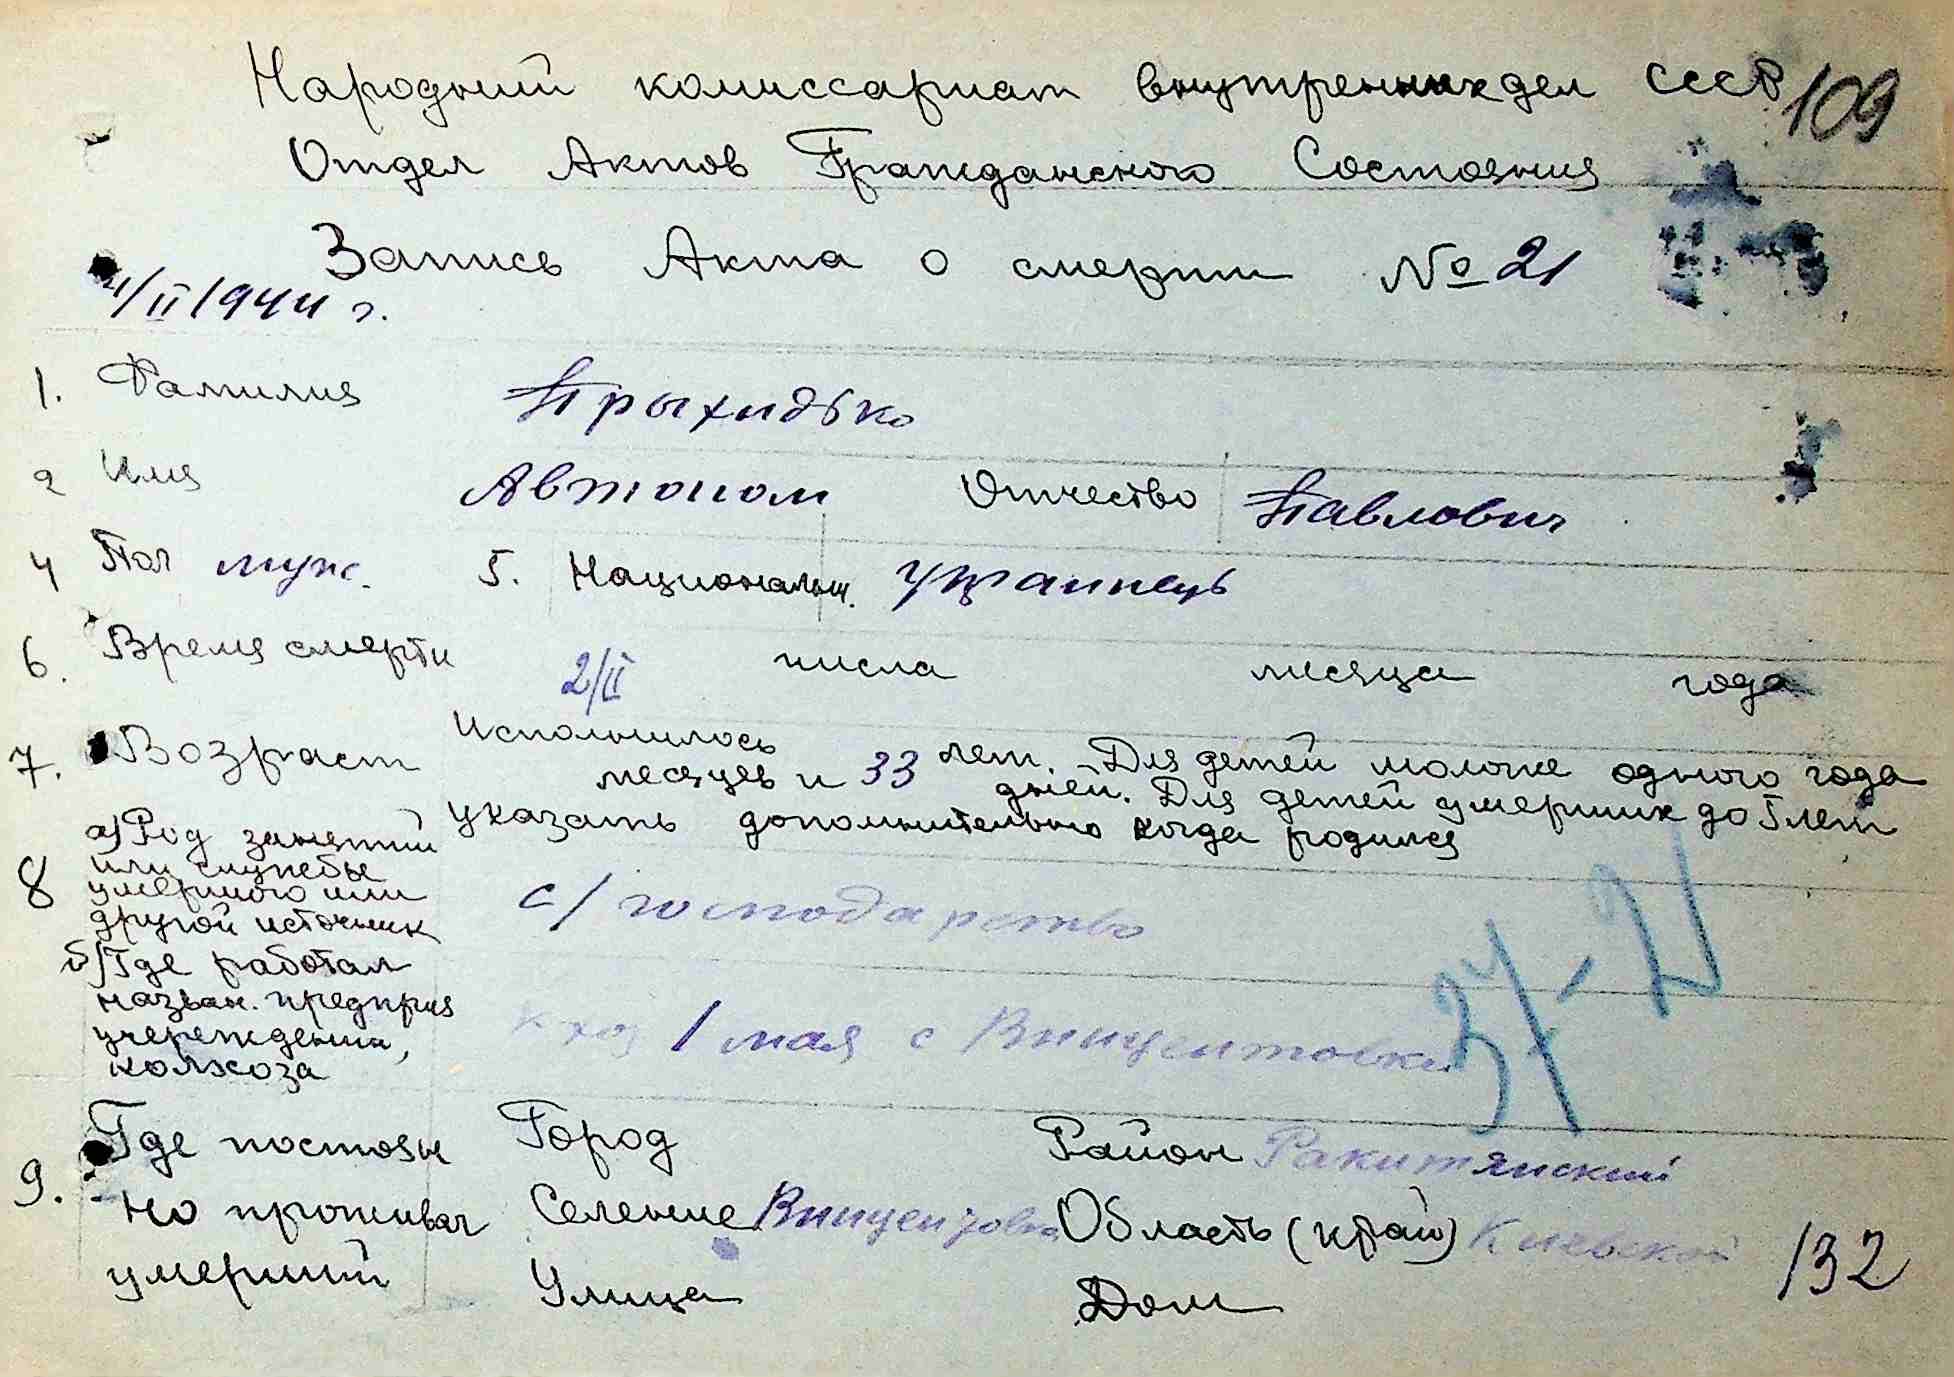 Народний комиссариат внутренних дел СССР 109
Отдел Актов Гражданского Состояния
Запись Акта о смерти № 21
4/II 1944 г.
1. Фамилия Прыхидько
2 Имя Автоном Отчество Павлович
4 Пол муж. 5. Националън. украинець
6. Время смерти 2/II числа месяца года
7. Возраст Исполнилось 33 лет. Для детей моложе одного года
месяцев и дней. Для детей умерших до 5 лет
указать дополнительно когда родился
8 а) Род занятий
или службы
умершого или
другой источник
с/господарство
б) Где работал
назван. предприя
учереждения,
колхоза
к-хоз 1 мая с Винцентовки
37-21
9. Где постоян
но проживал
умерший
Город Район Ракитянский
Селение Винцентовка Область (край) Киевской
Улица Дом
132